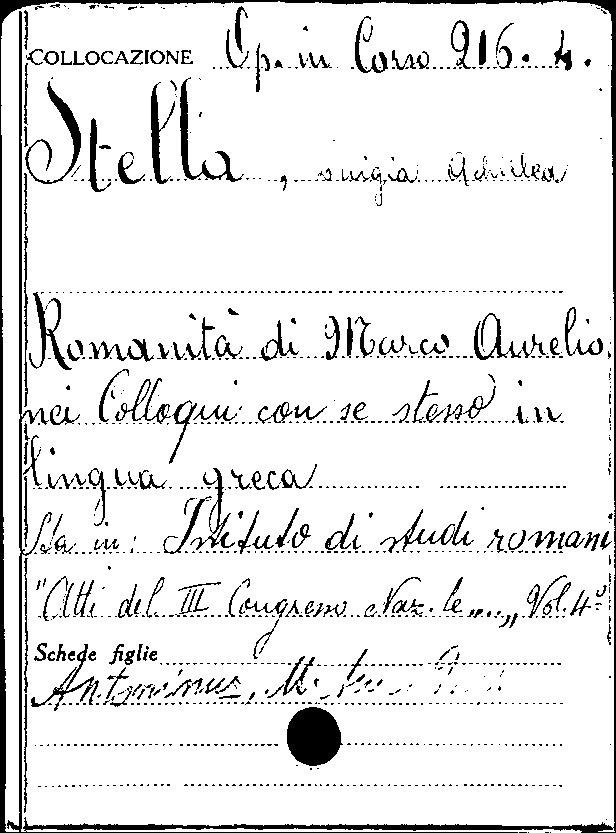 COLLOCAZIONE Op. in Corso 216. 4.
Stella, Luigia Achillea
Romanità di Marco Aurelio,
nei Colloqui con se stesso in
lingua greca
Sta in: Istituto di studi romani
"Atti del III Congresso Naz.le....„ Vol. 4º
Schede figlie
Antoninus, M.